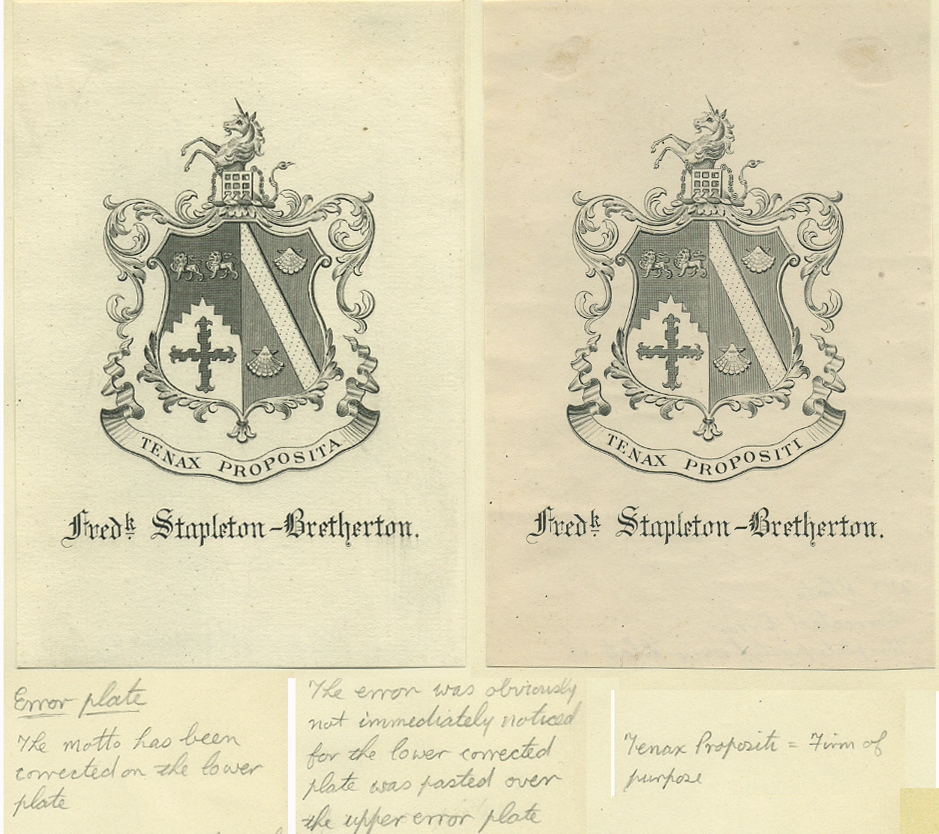 TENAX PROPOSITA
Fredk Stapleton-Bretherton.
TENAX PROPOSITI
Fredk Stapleton-Bretherton.
Error plate
The motto has been
corrected on the lower
plate
The error was obviously
not immediately noticed
for the lower corrected
plate was pasted over
the upper error plate
Tenax Propositi = Firm of
purpose